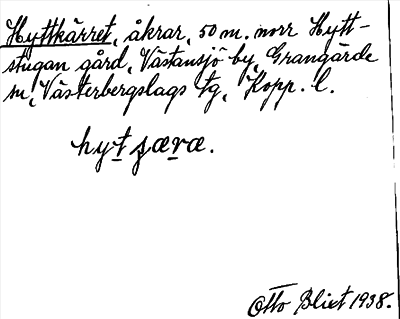 Hyttkärret, åkrar, 50 m. norr Hytt-
stugan gård, Västansjö by, Grangärde
sn, Västerbergslags tg, Kopp. l.
hyt ʃæræ.
Otto Blixt 1938.